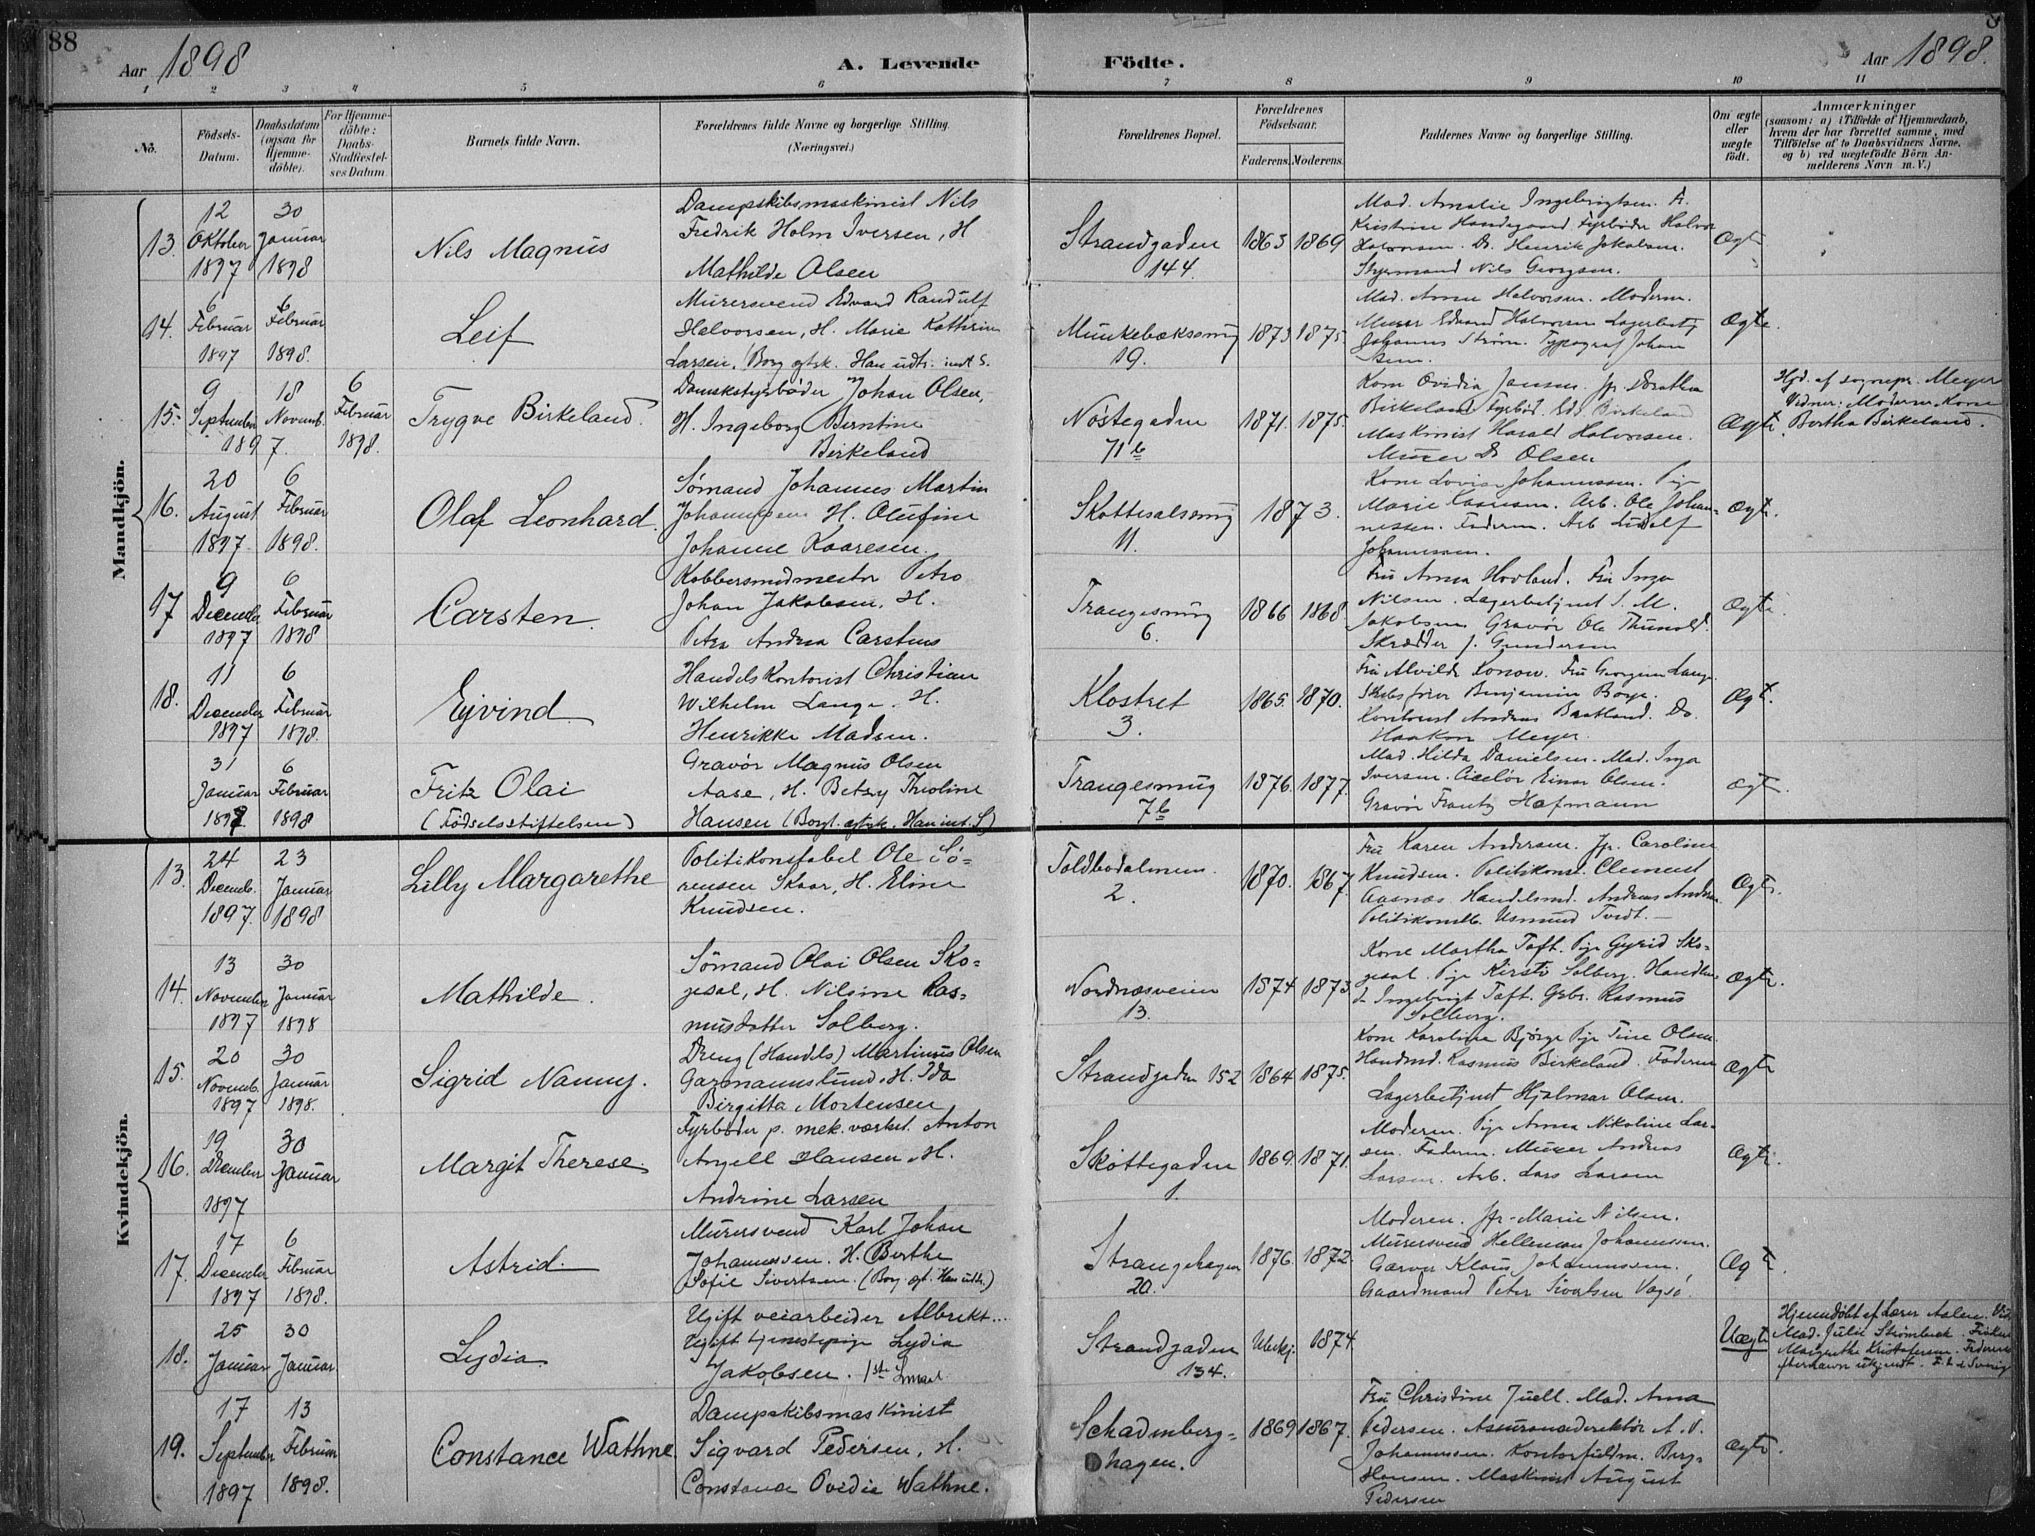 88
Aar 1898
A. Levende
Födte.
Aar 1898.
1 2 3 4 5 6 7 8 9 10 11
No.
Födsels-Datum.
Daabsdatum (ogsaa for Hjemme-döbte).
For Hjemme-döbte: Daabs-Stadfæstel-ses Datum.
Barnets fulde Navn.
Forældrenes fulde Navne og borgerlige Stilling. (Næringsvei.)
Forældrenes Bopæl.
Forældrenes Födselsaar.
Faderens. Moderens.
Faddernes Navne og borgerlige Stilling.
Om ægte eller uægte födt.
Anmærkninger
(saasom: a) i Tilfælde af Hjemmedaab,
hvem der har forrettet samme, med
Tilföielse af to Daabsvidners Navne,
og b) ved uægtefödte Börn An-
melderens Navn m.V.)
Mandkjön.
13. 12 Oktober 1897 30 Januar 1898
Nils Magnus
Dampskibsmaskinist Nils
Fredrik Holm Iversen, H
Mathilde Olsen
Strandgaden 144
1863 1869
Mad. Amalie Ingebrigtsen. Fr.
Kristine Fyrbøder Halvor
Halvorsen. Do. Henrik Jakobsen.
Styrmand Nils Georgsen.
Ægte
14. 6 Februar 1897 6 Februar 1898.
Leif
Murersvend Edvard Randulf
Halvorsen, H. Marie Kathrine
Larsen. (Borg. egtsk. Han udtr.
Munkebæksmug 19.
1873 1875.
Mad. Anna Halvorsen. Moderen.
Murer Edvard Halvorsen Lagerbetj.
Johannes Strøm. Typograf Johan
Ægte.
15. 9 Septemb. 18 Novemb. 1897. 6 Februar 1898.
Trygve Birkeland.
Johan Olsen,
H. Ingeborg Berntine
Birkeland
Nøstegaden 71 b
1871. 1875.
Kone Ovidia Jansen. Jfr. Dorathea
Birkeland Fyrbød. Edv. Birkeland
Maskinist Harald Halvorsen.
Murer D. Olsen
Ægte.
Hjd. af sognepr. Meyer
Vidner: Moderen, Kone
Bertha Birkeland.
16. 20 August 1897 6 Februar 1898.
Olaf Leonhard.
Sømand Johannes Martin
Johannesen H. Olufine
Johanne Kaaresen.
Skottesalsmug 11.
1873.
Kone Lovise Johannessen. Pige
Marie Arb. Ole Johan-
nessen. Faderen. Arb. Ludolf
Johannessen.
Ægte.
17 9 December 1897 6 Februar 1898
Carsten.
Kobbersmedmester Petro
Johan Jakobsen. H.
Petra Andrea Carstens
Trangesmug 6.
1866 1868
Fru Anna Hovland. Fru Inga
Nilsen. Lagerbetjent S. M.
Jakobsen Gravør Ole Thunold.
Skrædder J. Gundersen
Ægte
18. 11 December 1897 6 Februar 1898.
Ejvind.
Handelskontorist Christian
Wilhelm Lange. H.
Henrikke Madsen.
Klostret 3.
1865. 1870.
Fru Alvilde Konow. Fru Georgine Lange
Skibsfører Benjamin Boye.
Kontorist Andreas Do.
Haakon Meyer.
Ægt.
31 Januar 1898 6 Februar 1898
Fritz Olai
(Fødselsstiftelsen)
Gravør Magnus Olsen
Aase, H. Betzy Thioline
Hansen (Borgl. egtsk. Han int. S)
Trangesmug 7 b
1876. 1877.
Mad. Hilda Danielsen. Mad. Inga
Iversen. Ciselør Einar Olsen.
Gravør Frantz Hofmann
Ægte.
Kvindekjön.
13. 24 Decemb. 1897. 23 Januar 1898
Lilly Margarethe
Politikonstabel Ole Sö-
rensen Skaar, H. Eline
Knudsen.
Toldbodalmen. 2.
1870. 1867.
Fru Karen Andersen. Jfr. Caroline
Knudsen. Politikonst. Clement
Aasnæs Handelsmd. Andreas Andersen
Politikonstb. Usmund Tvedt.
Ægte.
14. 13 November 1897 30 Januar 1898
Mathilde.
Sømand Olai Olsen Sko-
gesal, H. Nilsine Ras-
musdatter Solberg.
Nordnæsveien 13.
1874 1873.
Kone Martha Toft. Pige Gyrid Sko-
gesal. Pige Kirsti Solberg. Handlen-
de Ingebrigt Toft. Grbr. Rasmus
Solberg.
Ægte.
15. 20 Novemb. 1897 30 Januar 1898.
Sigrid Nanny.
Dreng (Handels) Martinius Olsen
Garmannslund. H. Ida
Birgitta Mortensen
Strandgaden 152
1864 1875.
Kone Karolina Bjørge Pige Tine Olsen.
Handmd. Rasmus Birkeland. Faderen
Lagerbetjent Hjalmar Olsen.
Ægte
16. 19 December 1897 30 Januar
Margit Therese
Fyrbøder p. mek. værkst. Anton
Angell Hansen, H.
Andrine Larsen
Skottegaden 1.
1869. 1871.
Moderen. Pige Anna Nikoline Lar-
sen. Faderen. Murer Andreas
Larsen. Arb. Lars Larsen
Ægte.
17. 17 December 1897 6 Februar 1898.
Astrid.
Murersvend Karl Johan
Johannessen. H. Berthe
Sofie Sivertsen. (Borg. egt. Han udtr.)
Strangehagen 20.
1876. 1872.
Moderen. Jfr. Marie Nilsen.
Murersvend Helleman Johannessen.
Garver Klaus Johannessen.
Gaardmand Peter Sivertsen Vagsø.
Ægt.
18. 25 Januar 30 Januar
Lydia
Ugift veiarbeider Albrekt...
Ugift tjenestepige Lydia
Jakobsen. 1ste
Strandgaden 134.
Ubekj. 1874.
Uægte
Hjemmdøbt af Lærer Aalen. Vid.
Mad. Julie Strømbeck.
Margrethe Kristofersen. Faderens
efternavn ukjendt.
19. 17 September 1897 13 Februar 1898.
Constance Wathne.
Dampskibsmaskinist
Sigvard Pedersen, H.
Constance Ovidia Wathne.
Schadenberg-
hagen.
1869 1867.
Fru Christine Juell. Mad. Anna
Pedersen. Assurancedirektør A. P.
Johannessen. Kontorfuldm. Berg-
Hansen. Maskinist August
Pedersen
Ægte.